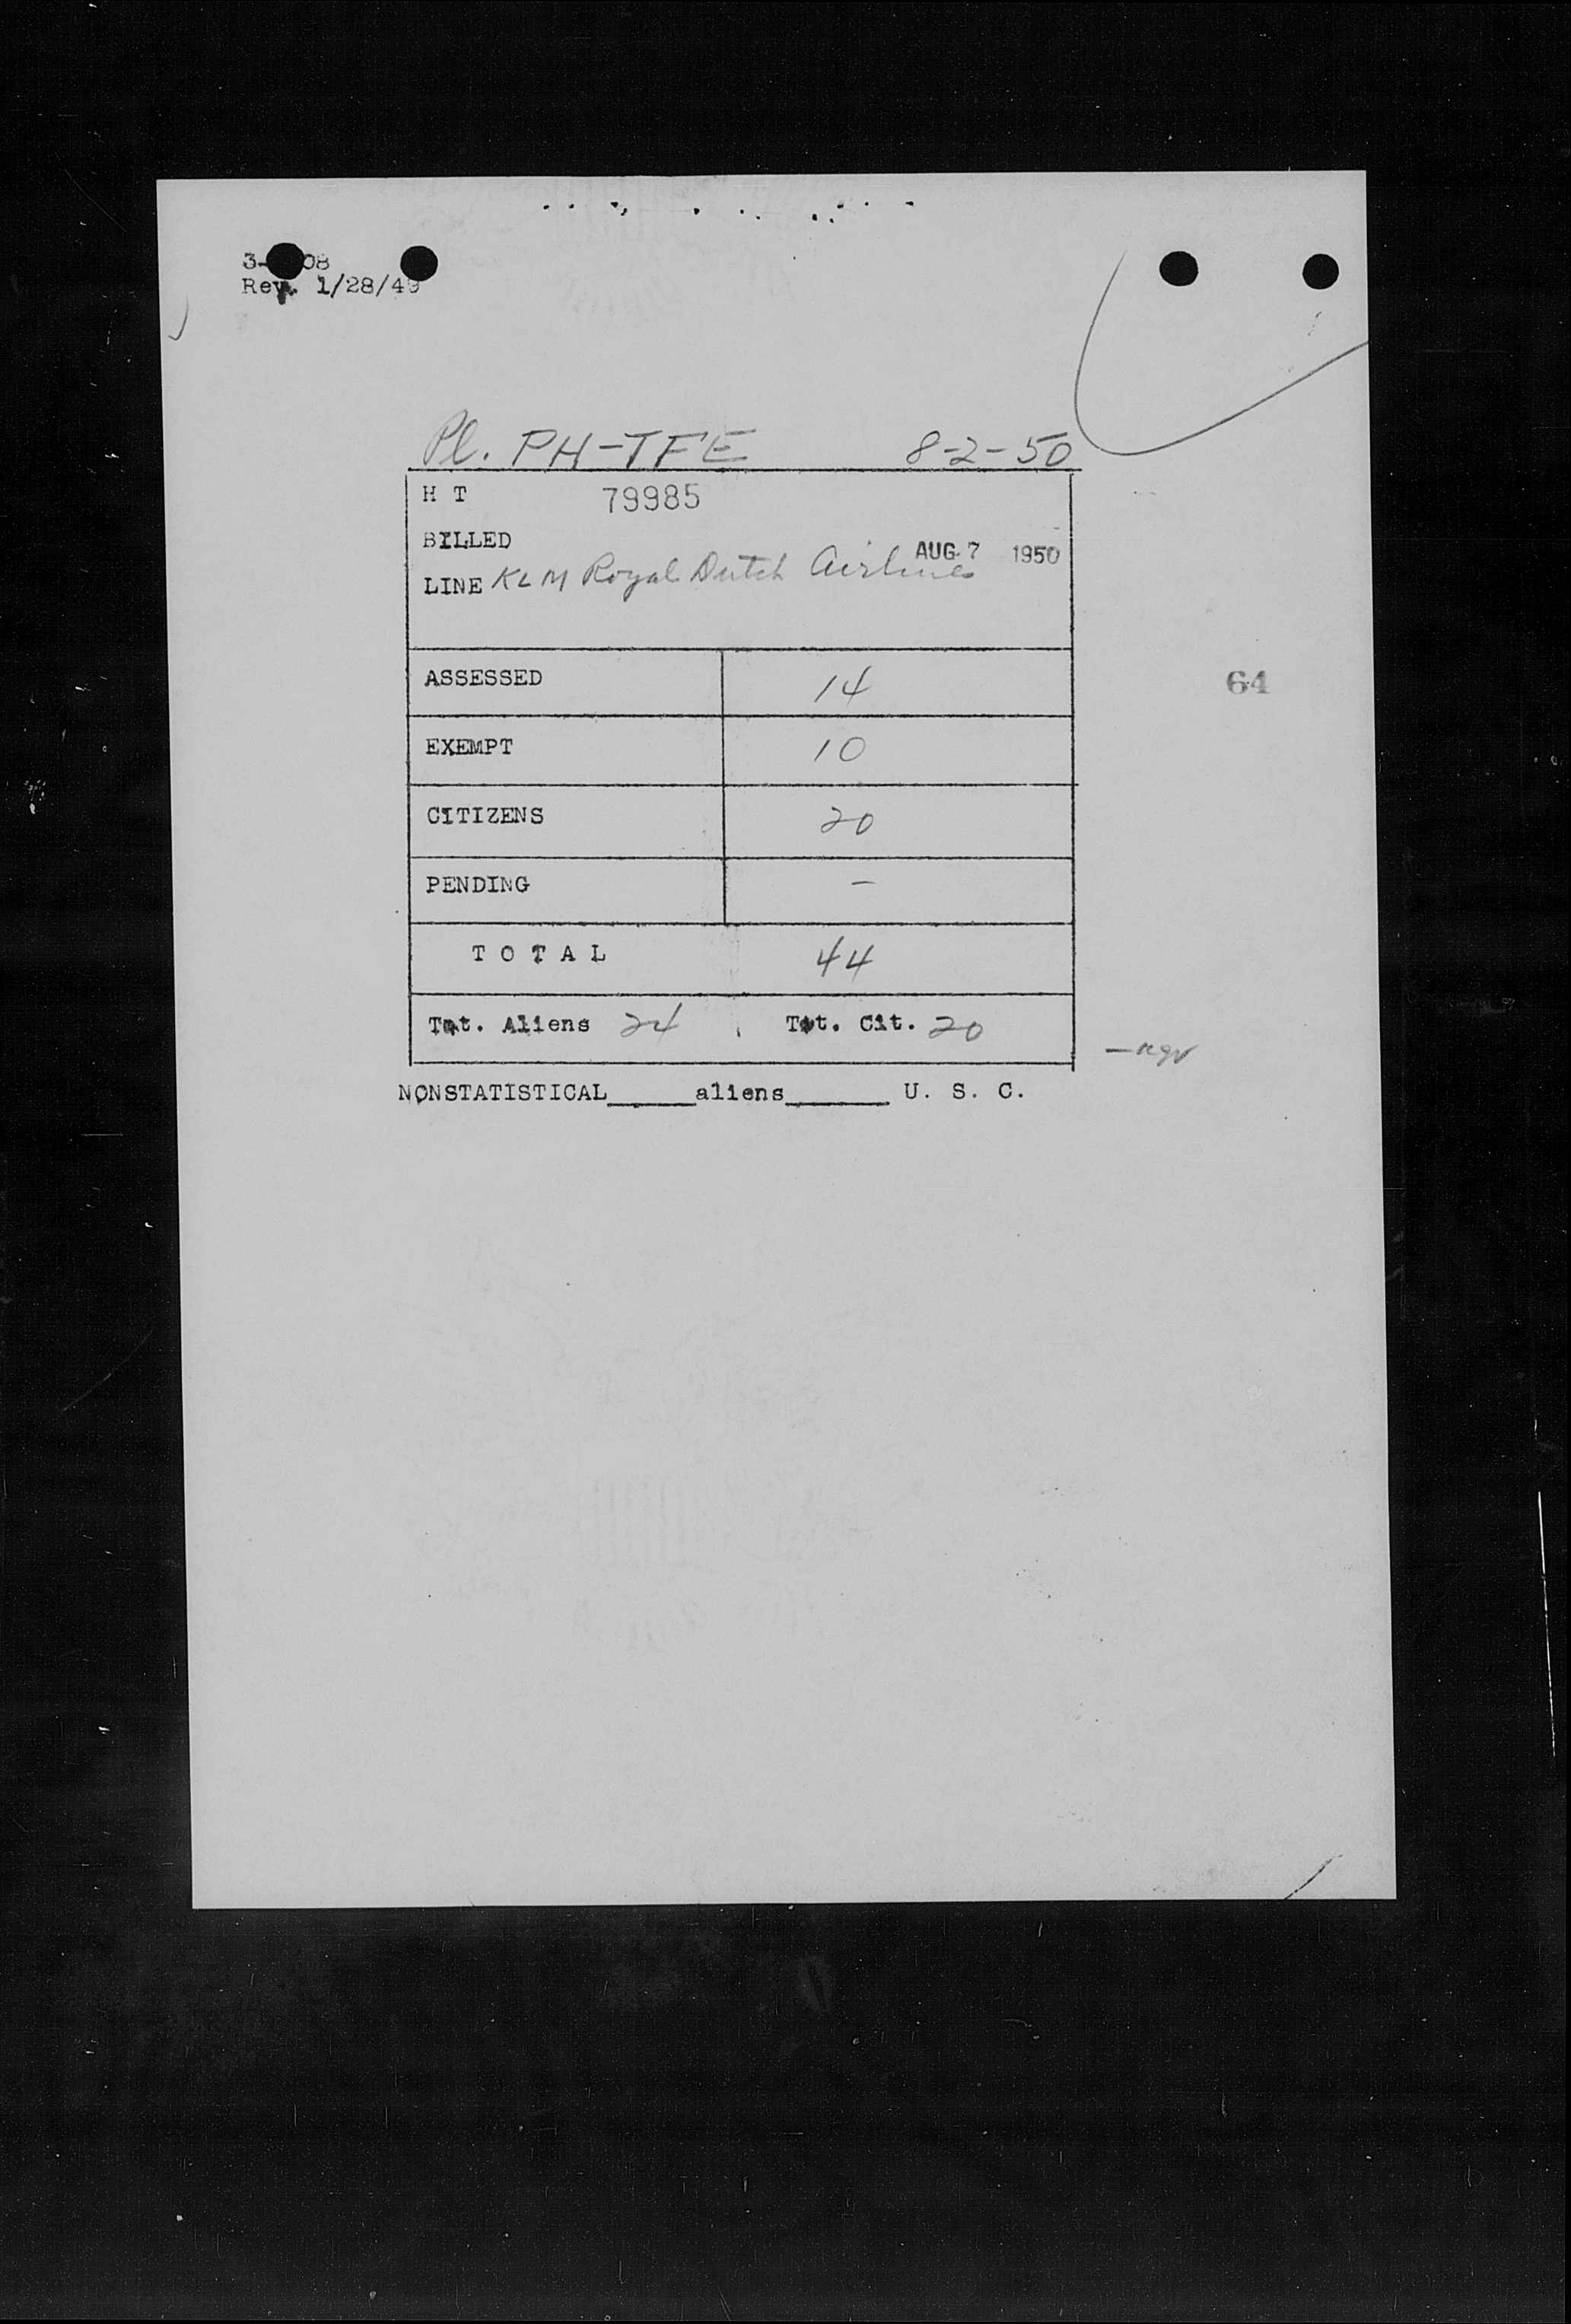 Rev. 1/28/49
Pl. PH-TFE 8-2-50
H T 79985
BILLED AUG 7 1950
LINE KLM Royal Dutch Airlines
ASSESSED 14
64
EXEMPT 10
CITIZENS 20
PENDING –
T O T A L 44
Tot. Aliens 24 Tot. Cit. 20
NONSTATISTICAL_____aliens______ U. S. C.